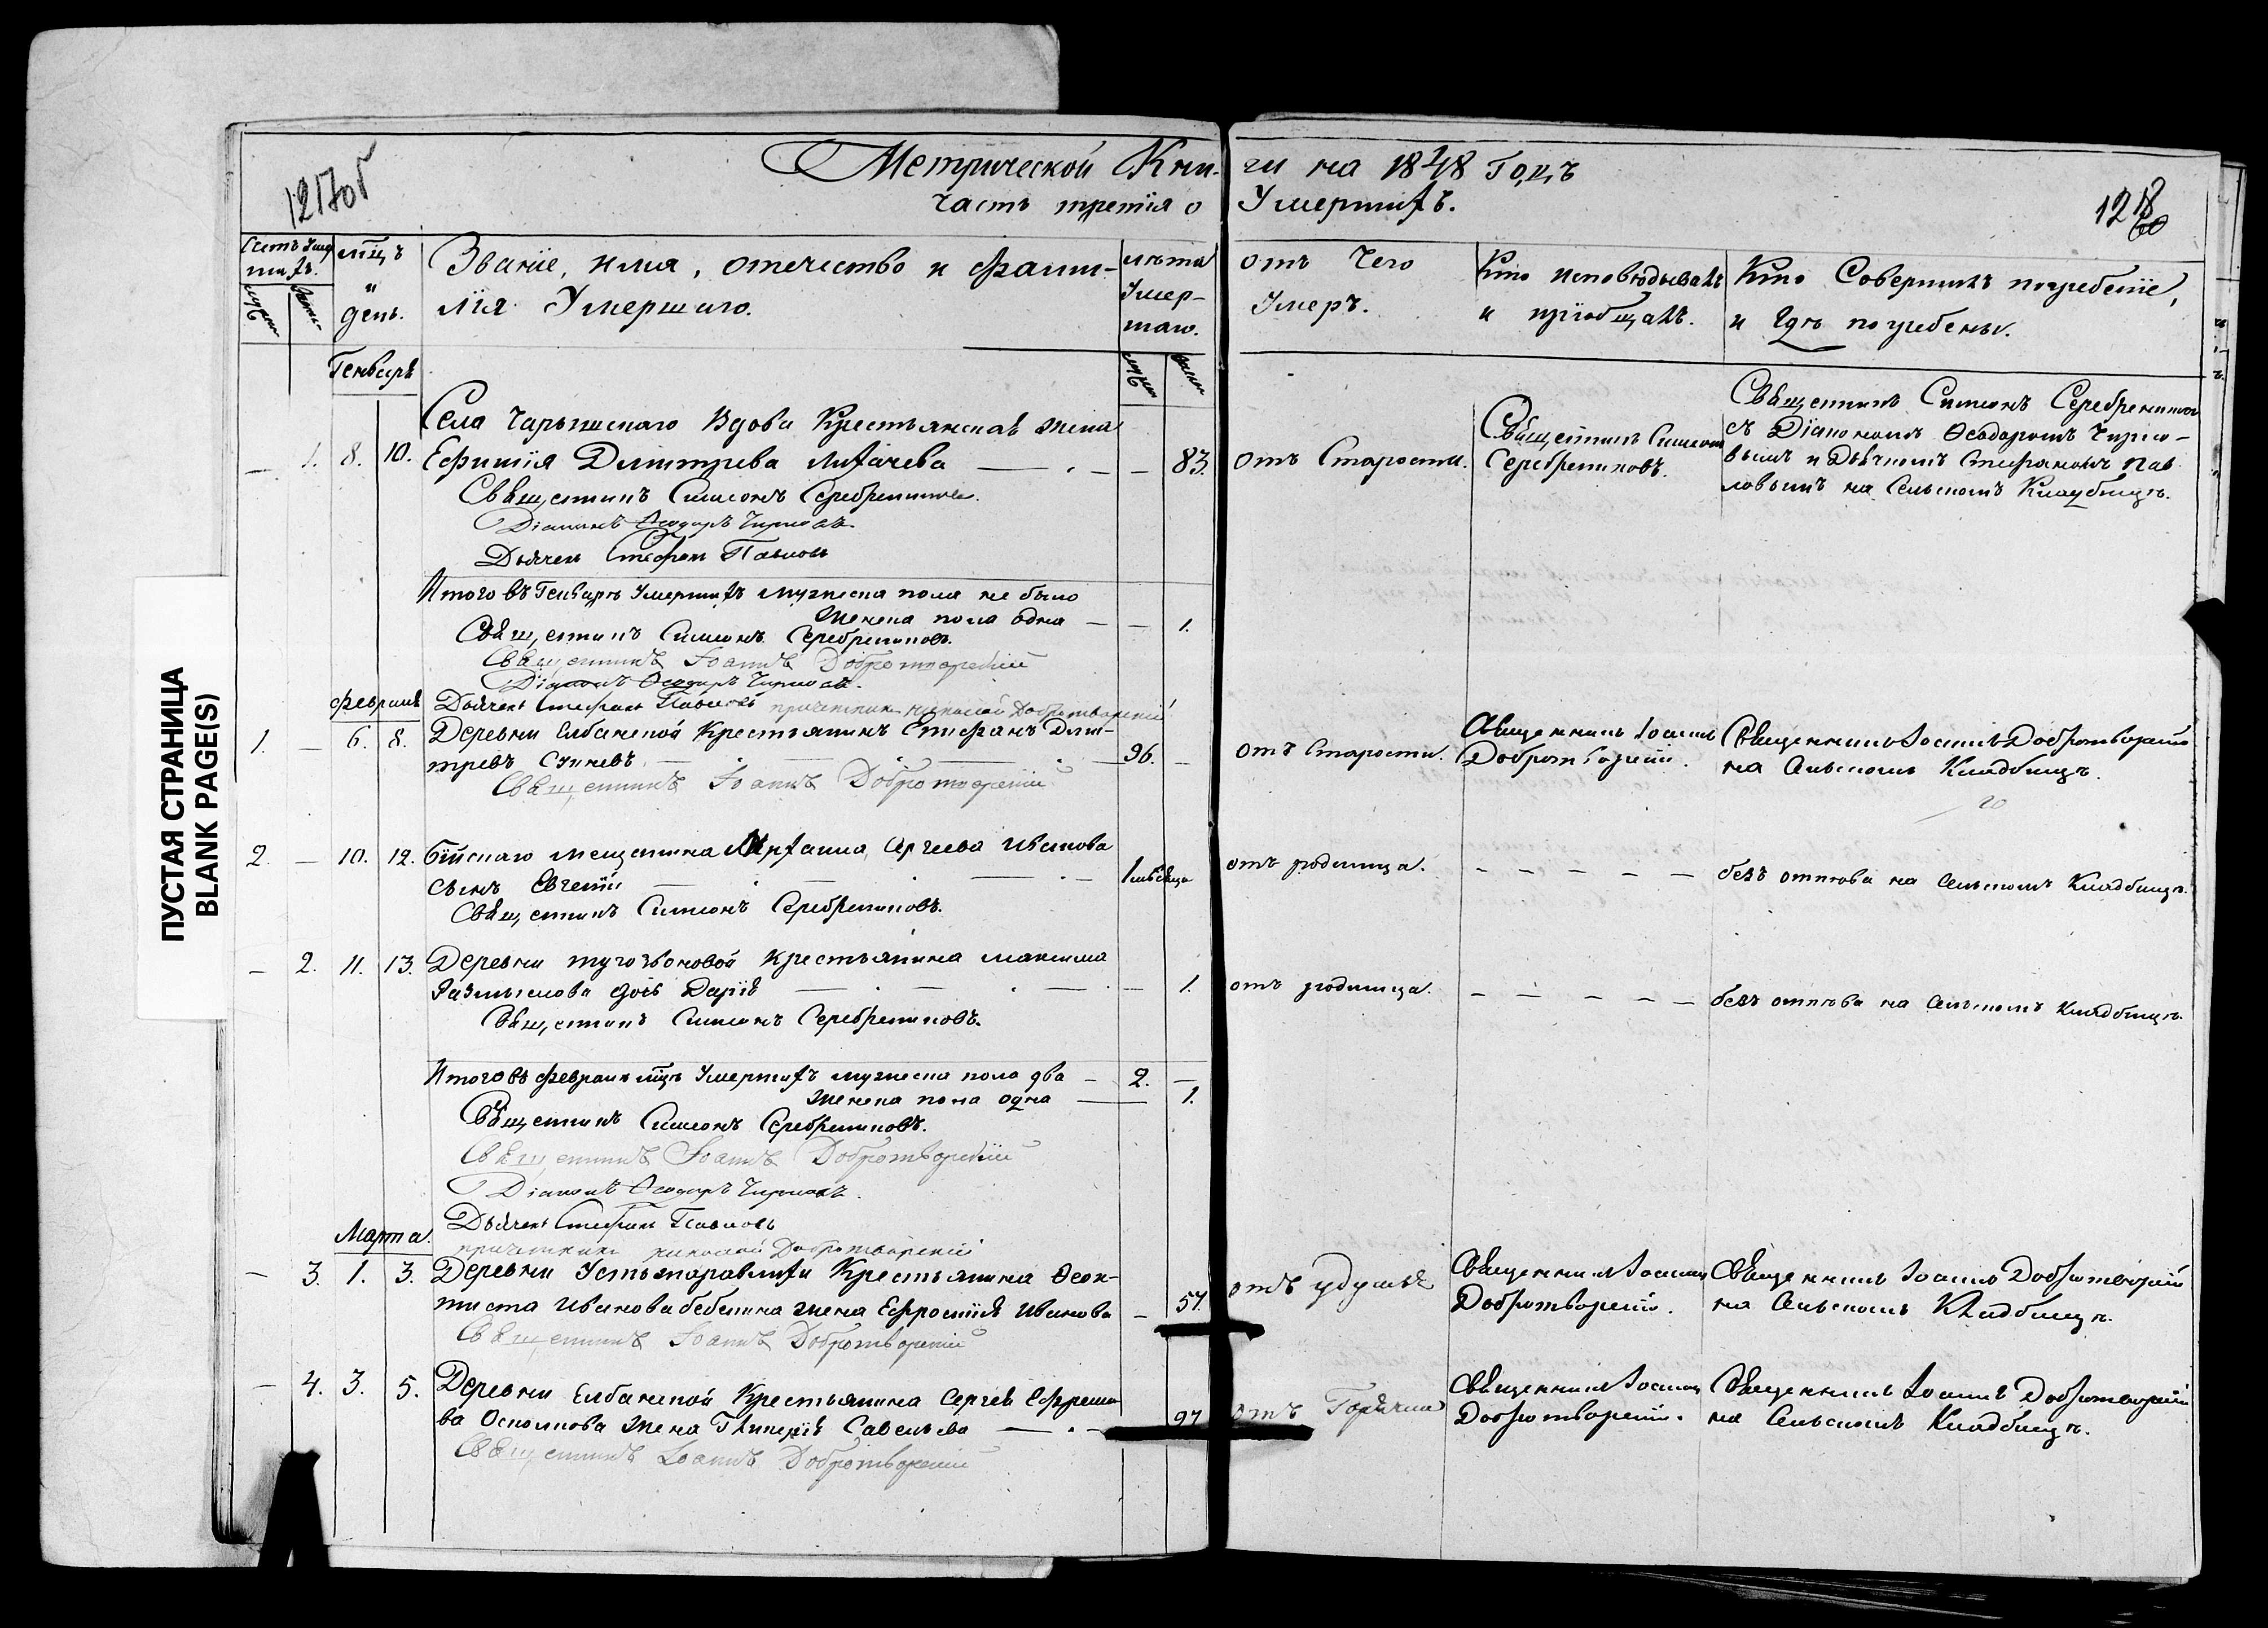 ПУСТАЯ СТРАНИЦА
BLANK PAGE(S)
1217об
Метрической Кни-ги на 1848 Годъ
часть третія о Умершихъ.
1218
60
Счетъ умершихъ.
мцъ
и
день.
Званіе, имя, отечество и фами-
лія Умершаго.
лѣта
Умер-
шаго.
отъ Чего
Умеръ.
Кто исповѣдывалъ
и пріобщалъ.
Кто Совершилъ погребеніе,
и гдѣ погребены.
Генварь
Села Чарышскаго Вдова Крестьянская жена
— 1. 8. 10. Ефимія Дмитріева Лихачева — 83. отъ Старости.
Священникъ Симеонъ
Серебренниковъ.
Священникъ Симеонъ Серебренниковъ
съ Діакономъ Ѳеодоромъ Чирко-
вымъ и Дьячкомъ Стефаномъ Пав
ловымъ на Сельскомъ Кладбищѣ.
Священникъ Симеонъ Серебренниковъ.
Діаконъ Ѳеодоръ
Дьячекъ Стефанъ Павловъ
Итого въ Генварѣ Умершихъ мужеска пола не было
Женска пола одна — — 1.
Священникъ Симеонъ Серебренниковъ.
Священникъ Іоаннъ Добротворскій
Діаконъ Ѳеодоръ
Дьячекъ Стефанъ Павловъ причетникъ Николай Добротворскій
Февраля
1. — 6. 8. Деревни Елбанской Крестьянинъ Стефанъ Дми-
тревъ — 96. — отъ Старости.
Священникъ Іоаннъ
Добротворскій.
Священникъ Іоаннъ Добротворскій
на Сельскомъ Кладбищѣ.
Священникъ Іоаннъ Добротворскій
2. — 10. 12. Бійскаго мещанина Сергеева Иванова
сынъ Евгеній — 1 мѣсяца отъ родимца. — — — — — безъ отпѣва на Сельскомъ Кладбищѣ.
Священникъ Симеонъ Серебренниковъ.
— 2. 11. 13. Деревни Тугозвоновой Крестьянина Максима
Размыслова дочь Дарія — 1. отъ родимца. — — — — — безъ отпѣва на Сельскомъ Кладбищѣ.
Священникъ Симеонъ Серебренниковъ.
Итого въ Февралѣ мцѣ Умершихъ мужеска пола два — 2. —
Женска пола одна — 1.
Священникъ Симеонъ Серебренниковъ.
Священникъ Іоаннъ Добротворскій
Діаконъ Ѳеодоръ
Дьячекъ Стефанъ Павловъ
причетникъ Николай Добротворскій
Марта
— 3. 1. 3. Деревни Крестьянина Ѳеок-
тиста Иванова Бебенина жена Ефросинія Иванова — 57. отъ удушья
Священникъ Іоаннъ
Добротворскій.
Священникъ Іоаннъ Добротворскій
на Сельскомъ Кладбищѣ.
Священникъ Іоаннъ Добротворскій
— 4. 3. 5. Деревни Елбанской Крестьянина Сергея Ефреمو
ва жена Гликерія Савельева — 97 отъ Горячки
Священникъ Іоаннъ
Добротворскій.
Священникъ Іоаннъ Добротворскій
на Сельскомъ Кладбищѣ.
Священникъ Іоаннъ Добротворскій